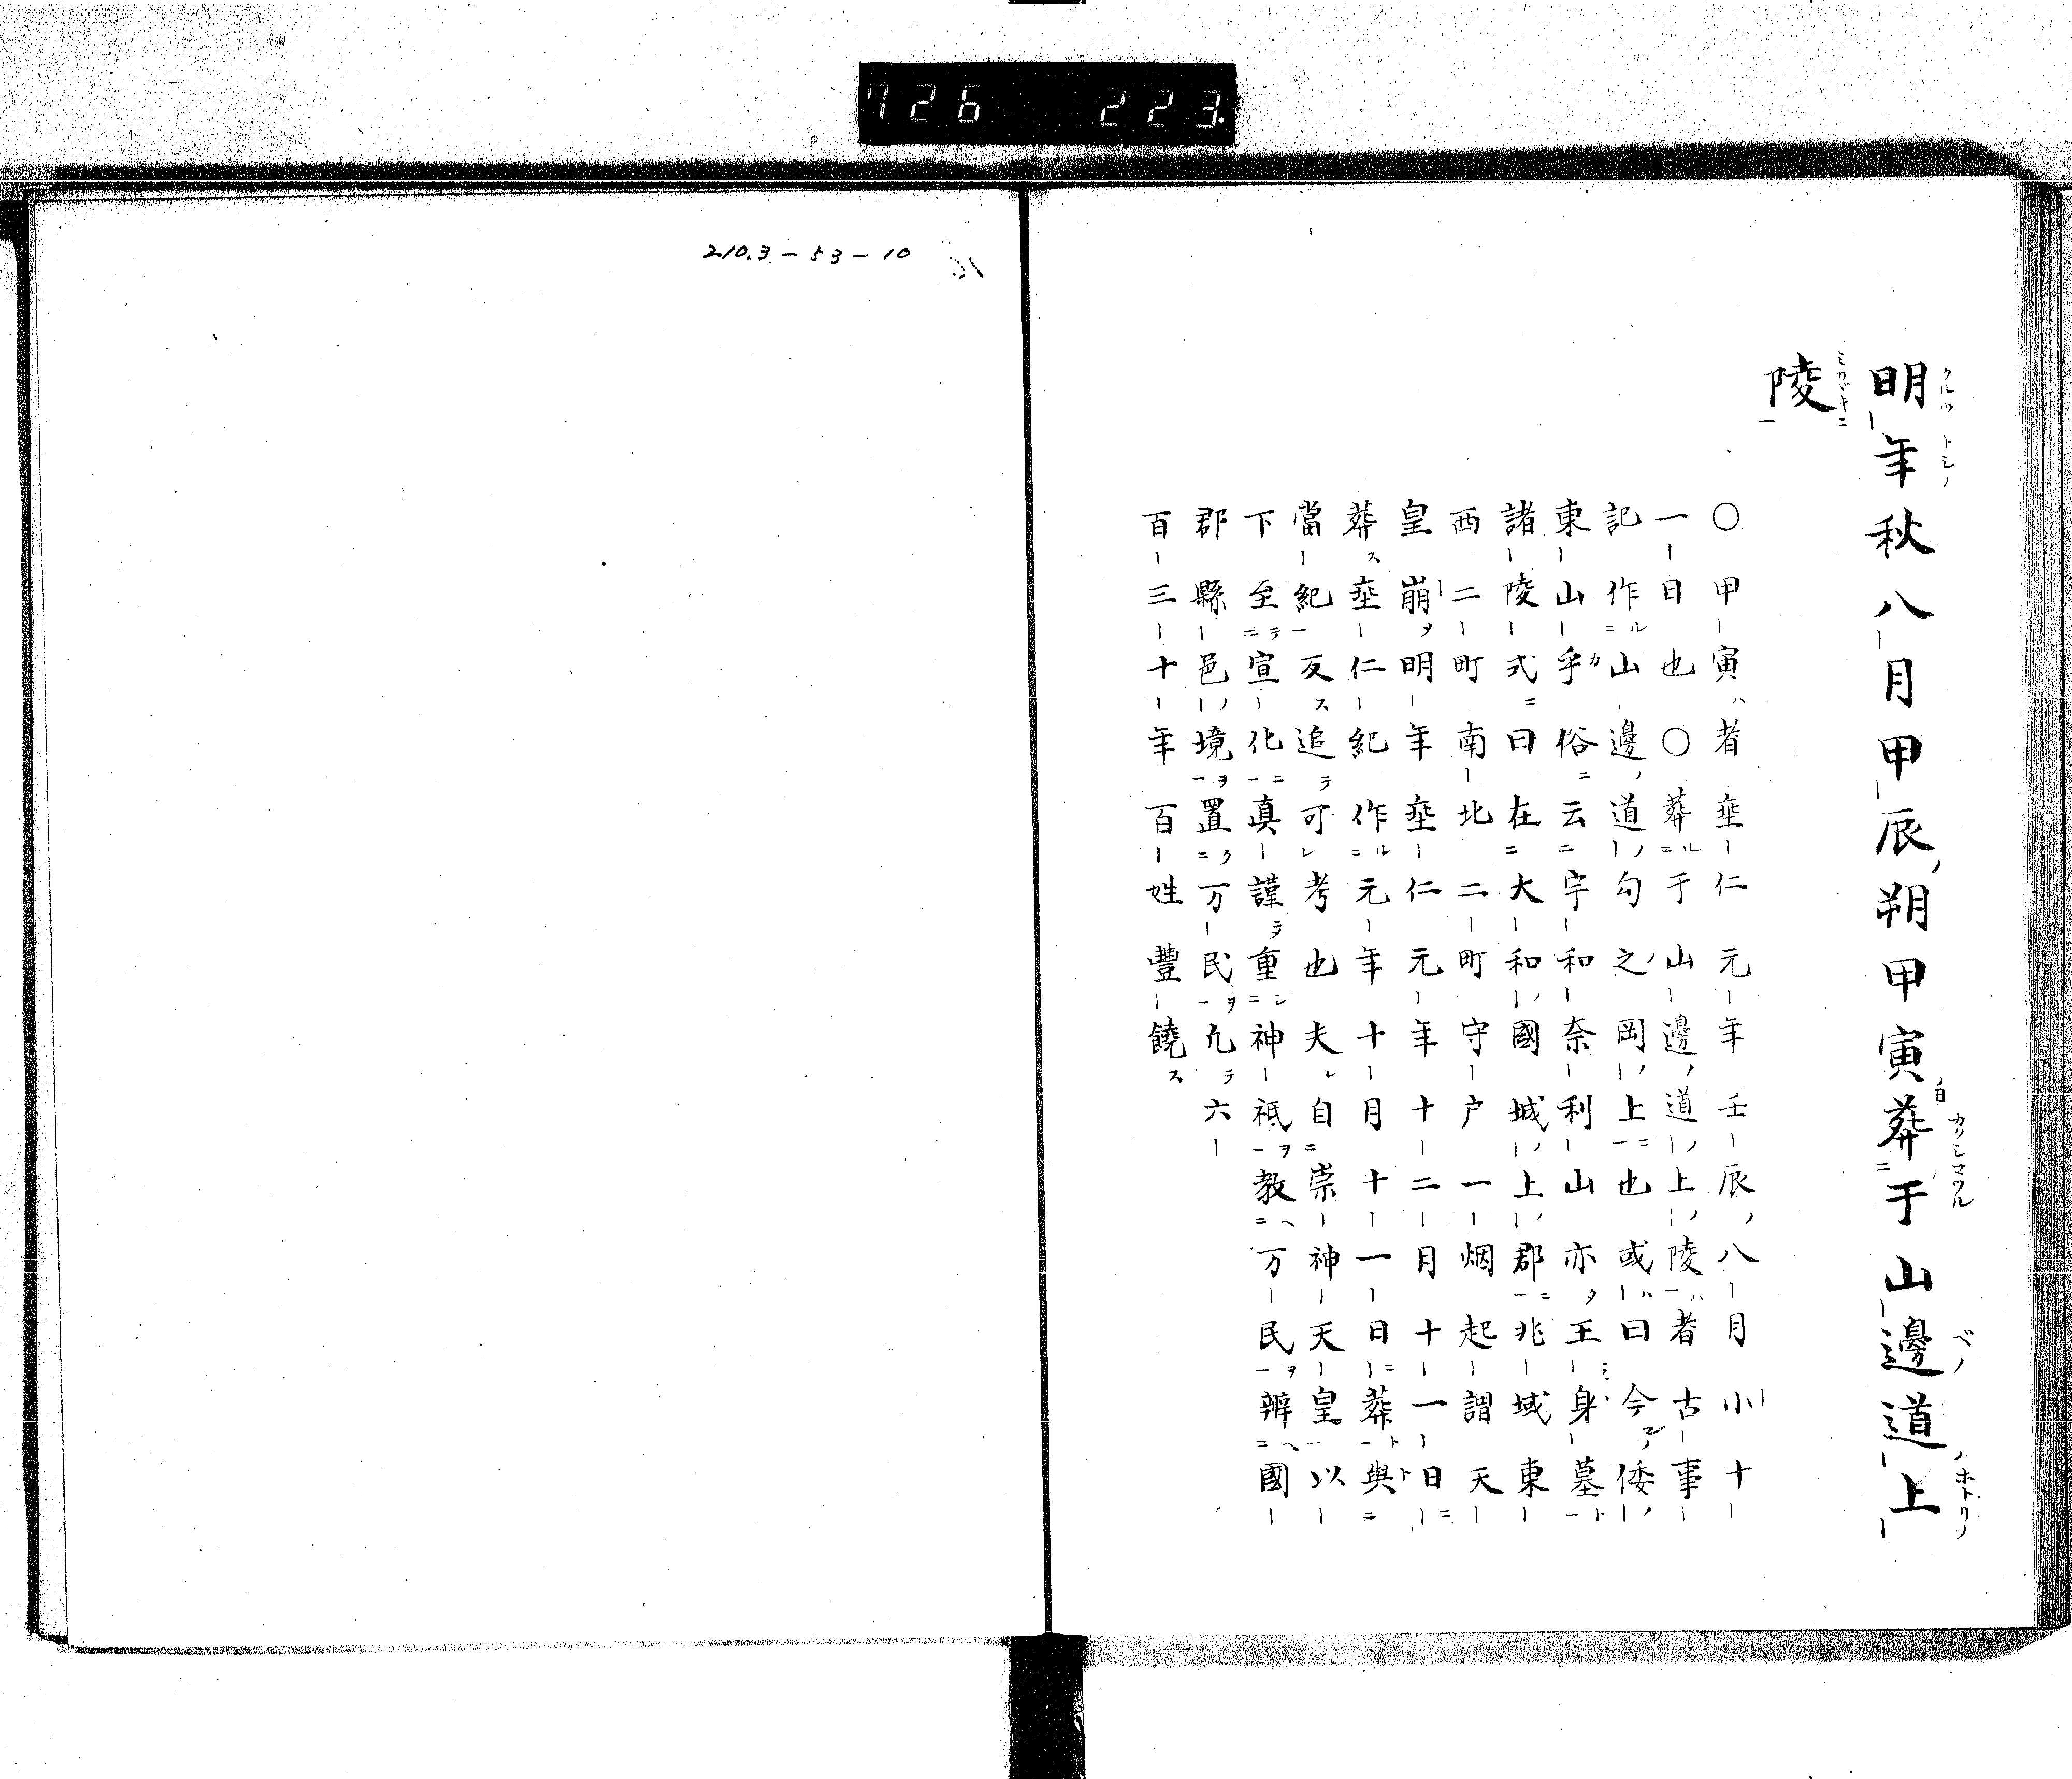 726 223
明年秋八月甲辰朔甲寅葬于山邊道上
陵
○甲寅者埀仁元年壬辰八月小十
一日也○葬于山邊道上陵者古事
記作山邊道勾之岡上也或曰今倭
東山乎俗云宇和奈利山亦王身墓
諸陵式曰在大和國城上郡兆域東
西二町南北二町守戸一烟起謂天
皇崩明年埀仁元年十二月十一日
葬埀仁紀作元年十月十一日葬與
當紀反追可考也夫自崇神天皇以
下至宣化真謹重神祇教万民辨國
郡縣邑境置万民九六
百三十年百姓豐饒
210.3-53-10